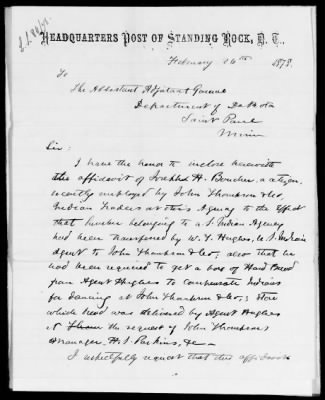 HEADQUARTERS POST OF STANDING ROCK, D. T.,
February 26th 1878.
To
The Assistant Adjutant General
Department of Dakota
Saint Paul
Minn
Sir:
I have the honor to inclose herewith
the affidavit of Joseph H. Boucher, a citizen,
recently employed by John Thompson & Co,
Indian Traders at this Agency to the effect
that lumber belonging to U.S. Indian Agency
had been transferred by W. T. Hughes, U.S. Indian
Agent to John Thompson & Co, also that he
had been required to get a box of Hard Bread
from Agent Hughes to compensate Indians
for dancing at John Thompson & Co,s store
which bread was delivered by Agent Hughes
at the request of John Thompson's
Manager, H. S. Parkins, &c—
I respectfully request that this affidavit